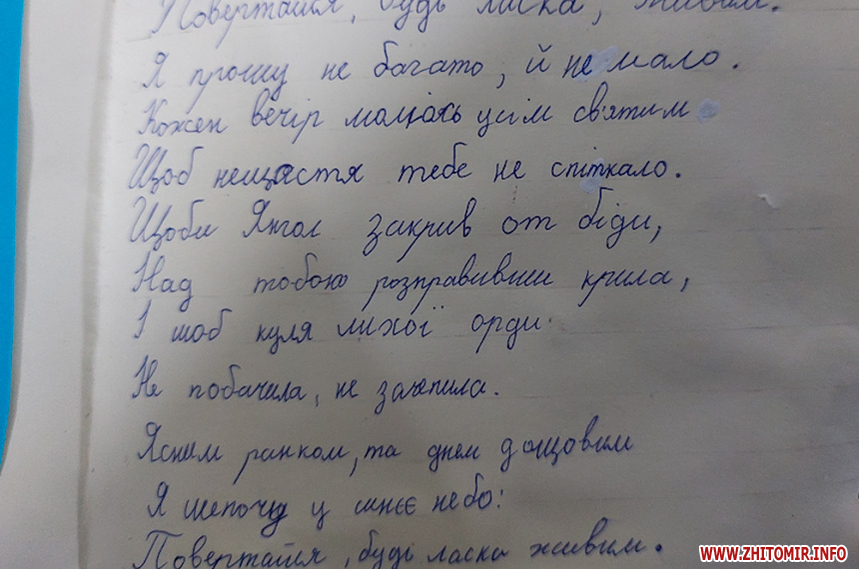 Повертайся, будь ласка, живим.
Я прошу не багато, й не мало.
Кожен вечір молюсь усім св'ятим
Щоб нещастя тебе не спіткало.
Щоби Янгол закрив от біди,
Над тобою розправивши крила,
І щоб куля лихої орди
Не побачила, не зачепила.
Ясним ранком, та днем дощовим
Я шепочу у синє небо:
Повертайся, будь ласка живим.
WWW.ZHITOMIR.INFO